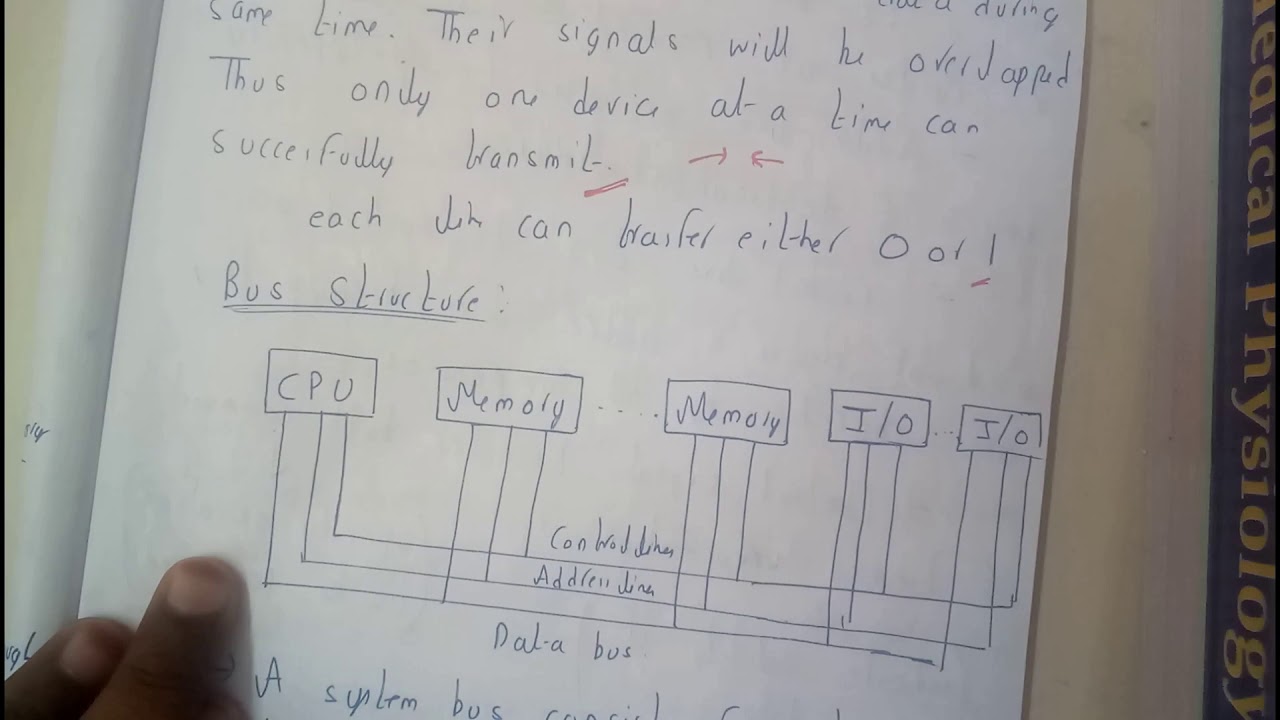 during
same time. Their signals will be overlapped
Thus only one device at a time can
succeifully transmit.
each can trasfer either 0 or 1
Bus Structure:
CPU Memory ..... Memory I/O ... I/O
Control lines
Address lines
Data bus
A system bus
Medical Physiology